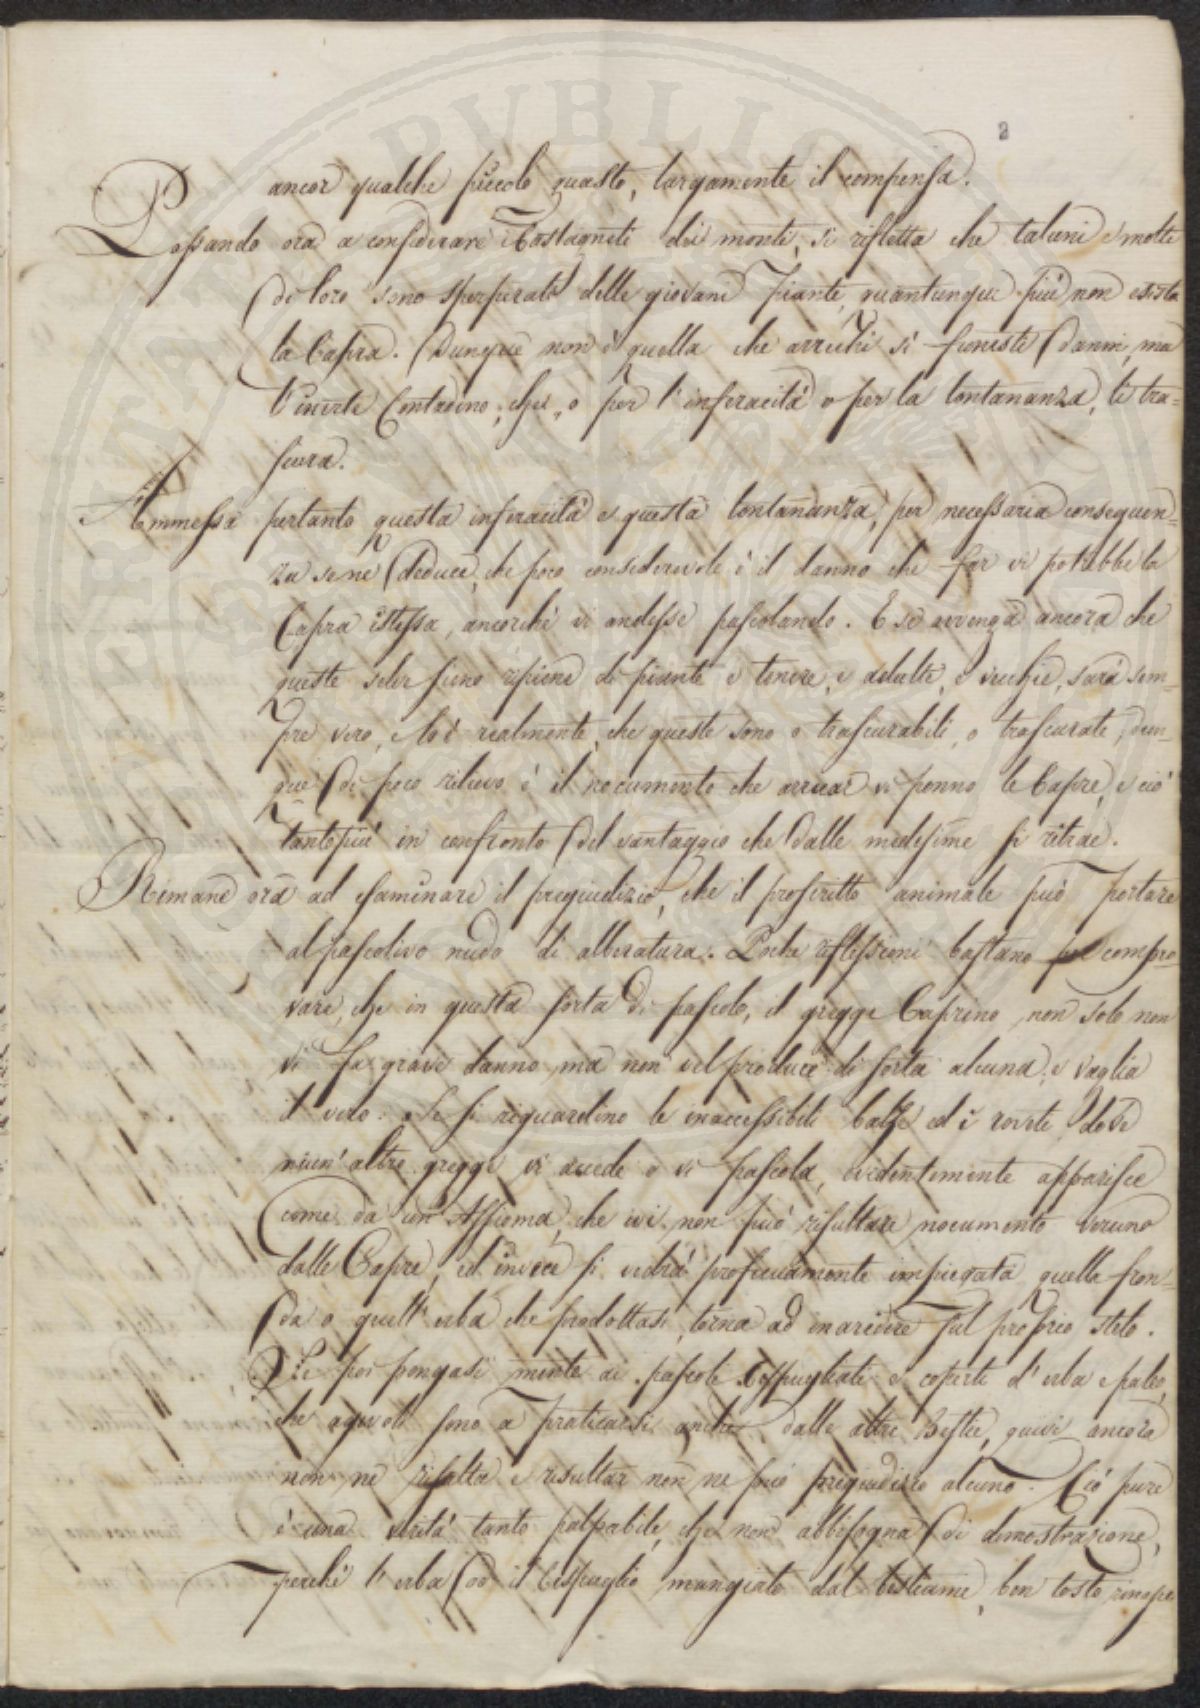 2
ancor qualche piccolo guasto, largamente il compensa.
Passando ora a considerare i Castagneti dei monti, si rifletta che taluni e molti
di loro sono sperperati delle giovani piante, quantunque più non esista
la Capra. Dunque non è quella che arrechi sì funesti danni, ma
l'inerte Contadino, che, o per l'inferacità o per la lontananza, li tra=
scura.
Ammessa pertanto questa inferacità e questa lontananza, per necessaria conseguen=
za se ne deduce, che poco considerevole è il danno che far vi potrebbe la
Capra istessa, ancorchè vi andesse pascolando. E se avvenga ancora che
queste selve sieno ripiene di piante e tenere, e adulte, e vecchie, sarà sem=
pre vero, e lo è realmente, che queste sono o trascurabili, o trascurate, dun=
que di poco rilievo è il nocumento che arrecar vi ponno le Capre, e ciò
tantopiù in confronto del vantaggio che dalle medesime si ritrae.
Rimane ora ad esaminare il pregiudizio, che il proscritto animale può portare
al pascolivo nudo di alberatura. Poche riflessioni bastano per compro=
vare, che in questa sorta di pascolo, il gregge Caprino, non solo non
vi fa grave danno, ma non vel produce di sorta alcuna, e vaglia
il vero. Se si riguardino le inaccessibili balze ed i roveti, dove
niun' altro gregge vi accede o vi pascola, evidentemente apparisce
come da un Assioma, che ivi non può risultare nocumento veruno
dalle Capre, ed invece si vedrà proficuamente impiegata quella fron=
da o quell' erba che prodottasi, torna ad inaridire sul proprio stelo.
Se poi pongasi mente ai pascoli cespugliati e coperti d'erba e paleo,
che agevoli sono a praticarsi anche dalle altre Bestie, quivi ancora
non ne risulta e risultar non ne può pregiudizio alcuno. Ciò pure
è una verità tanto palpabile, che non abbisogna di dimostrazione,
perchè l'erba od il Cespuglio mangiato dal bestiame, ben tosto